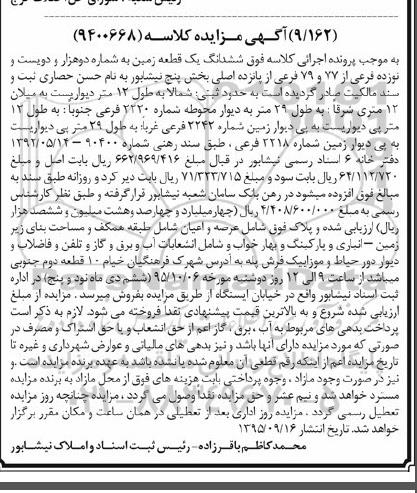 (۹/۱۶۲) آگهی مزایده کلاسه (۹۴۰۰۶۶۸)
به موجب پرونده اجرائی کلاسه فوق ششدانگ یک قطعه زمین به شماره دوهزار و دویست و
نوزده فرعی از ۷۷ و ۷۹ فرعی از پانزده اصلی بخش پنج نیشابور به نام حسن حصاری ثبت و
سند مالکیت صادر گردیده است به حدود ثبتی: شمالا به طول ۱۲ متر دیواریست به میلان
۱۲ متری شرقا : به طول ۲۹ متر به دیوار محوطه شماره ۲۲۲۰ فرعی جنوبا : به طول ۱۲
متر پی دیواریست به پی دیوار زمین شماره ۲۲۴۲ فرعی غربا: به طول ۲۹ متر پی دیواریست
به پی دیوار زمین شماره ۲۲۱۸ فرعی ، طبق سند رهنی شماره ۹۰۴۰۰ - ۱۳۹۲/۰۵/۱۴
دفتر خانه ۶ اسناد رسمی نیشابور در قبال مبلغ ۶۶۲/۹۶۹/۴۱۶ ریال بابت اصل و مبلغ
۶۴/۱۱۲/۷۲۰ ریال بابت سود و مبلغ ۷۱/۳۲۲/۷۱۵ ریال بابت دیر کرد و روزانه طبق سند به
مبالغ فوق افزوده میشود در رهن بلک سامان شعبه نیشابور قرار گرفته و طبق نظر کارشناس
رسمی به مبلغ ۴/۴۰۸/۶۰۰/۰۰۰ ریال (چهار میلیارد و چهارصد وهشت میلیون و ششصد هزار
ریال) ارزیابی شده و پلاک فوق شامل عرصه و اعیان شامل طبقه همکف و مساحت بنای زیر
زمین - انباری و پارکینگ و بهار خواب و شامل انشعابات آب و برق و گاز و تلفن و فاضلاب و
دیوار دور حیاط و موزاییک فرش پله به آدرس شهرک فرهنگیان خیام ۱۰ قطعه دوم جنوبی
میباشد از ساعت ۹ الی ۱۲ روز دوشنبه مورخه ۹۵/۱۰/۰۶ (ششم دی ماه نود و پنج) در اداره
ثبت اسناد نیشابور واقع در خیابان ایستگاه از طریق مزایده بفروش میرسد . مزایده از مبلغ
ارزیابی شده شروع و به بالاترین قیمت پیشنهادی نقدا فروخته می شود. لازم به ذکر است
پرداخت بدهی های مربوط به آب ، برق ، گاز اعم از حق انشعاب و یا حق اشتراک و مصرف در
صورتی که مورد مزایده دارای آنها باشد و نیز بدهی های مالیاتی و عوارض شهرداری و غیره تا
تاریخ مزایده اعم از اینکه رقم قطعی آن معلوم شده یا نشده باشد به عهده برنده مزایده است . و
نیز در صورت وجود مازاد ، وجوه پرداختی بابت هزینه های فوق از محل مازاد به برنده مزایده
مسترد خواهد شد و نیم عشر و حق مزایده نقدا وصول می گردد ، مزایده چنانچه روز مزایده
تعطیل رسمی گردد . مزایده روز اداری بعد از تعطیلی در همان ساعت و مکان مقرر برگزار
خواهد شد. تاریخ انتشار ۱۳۹۵/۰۹/۱۶
محمدکاظم باقرزاده - رئیس ثبت اسناد و املاک نیشابور